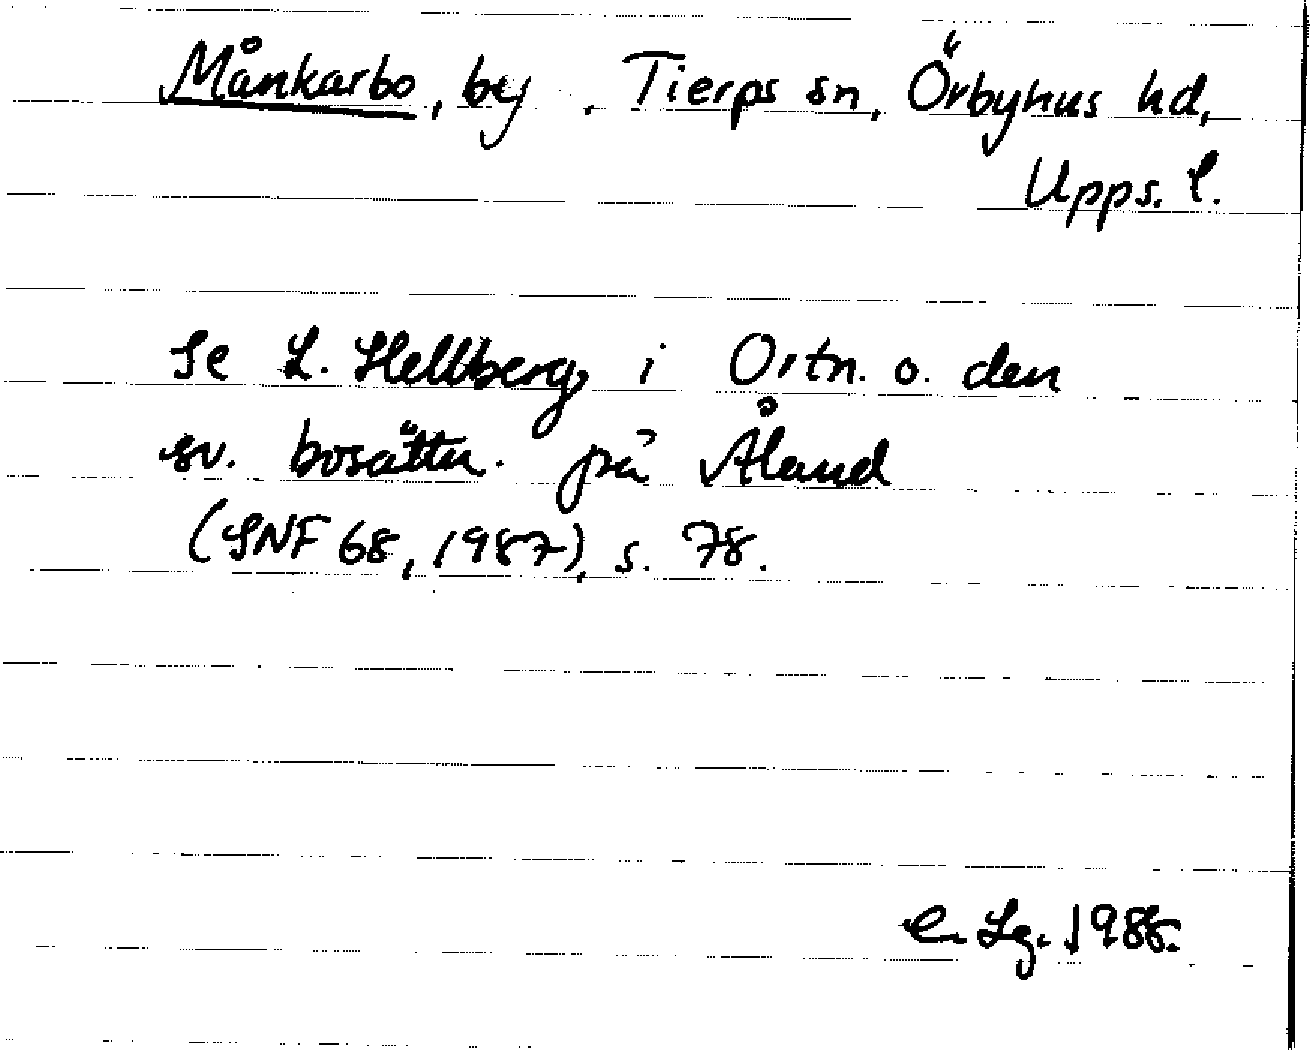 Månkarbo, by, Tierps sn, Örbyhus hd,
Upps. l.
Se L. Hellberg i Ortn. o. den
sv. bosättn. på Åland
(SNF 68, 1987), s. 78.
Lg. 1988.